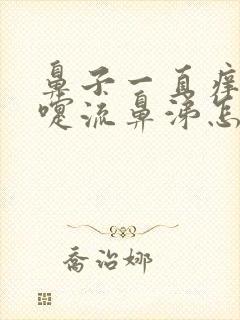 鼻子一直痒
嚏流鼻涕怎
乔治娜